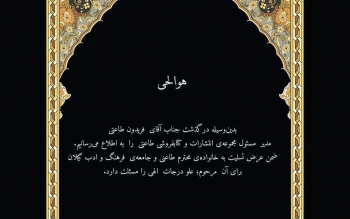 هوالحی
بدین‌وسیله درگذشت جناب آقای فریدون طاعتی
مدیر مسئول مجموعه‌ی انتشارات و کتابفروشی طاعتی را به اطلاع می‌رسانیم.
ضمن عرض تسلیت به خانواده‌ی محترم طاعتی و جامعه‌ی فرهنگ و ادب گیلان
برای آن مرحوم؛ علو درجات الهی را مسئلت دارد.